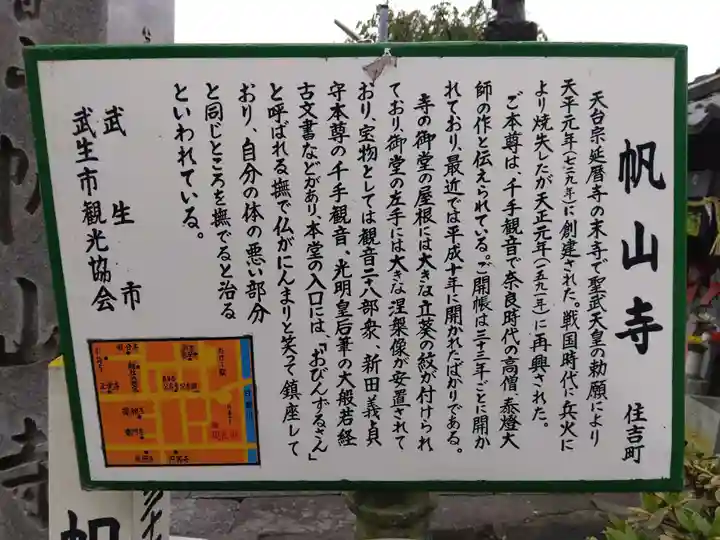 帆山寺
住吉町
天台宗延暦寺の末寺で聖武天皇の勅願により
天平元年(七二九年)に創建された。戦国時代に兵火に
より焼失したが天正元年(一五九一年)に再興された。
ご本尊は、千手観音で奈良時代の高僧泰燈大
師の作と伝えられている。ご開帳は三十三年ごとに開か
れており、最近では平成十年に開かれたばかりである。
寺の御堂の屋根には大きな立葵の紋が付けられ
ており、御堂の左手には大きな涅槃像が安置されて
おり、宝物としては観音二十八部衆、新田義貞
守本尊の千手観音、光明皇后筆の大般若経
古文書などがあり、本堂の入口には、「おびんずるさん」
と呼ばれる撫で仏がにんまりと笑って鎮座して
おり、自分の体の悪い部分
と同じところを撫でると治る
といわれている。
武生市
武生市観光協会
帆